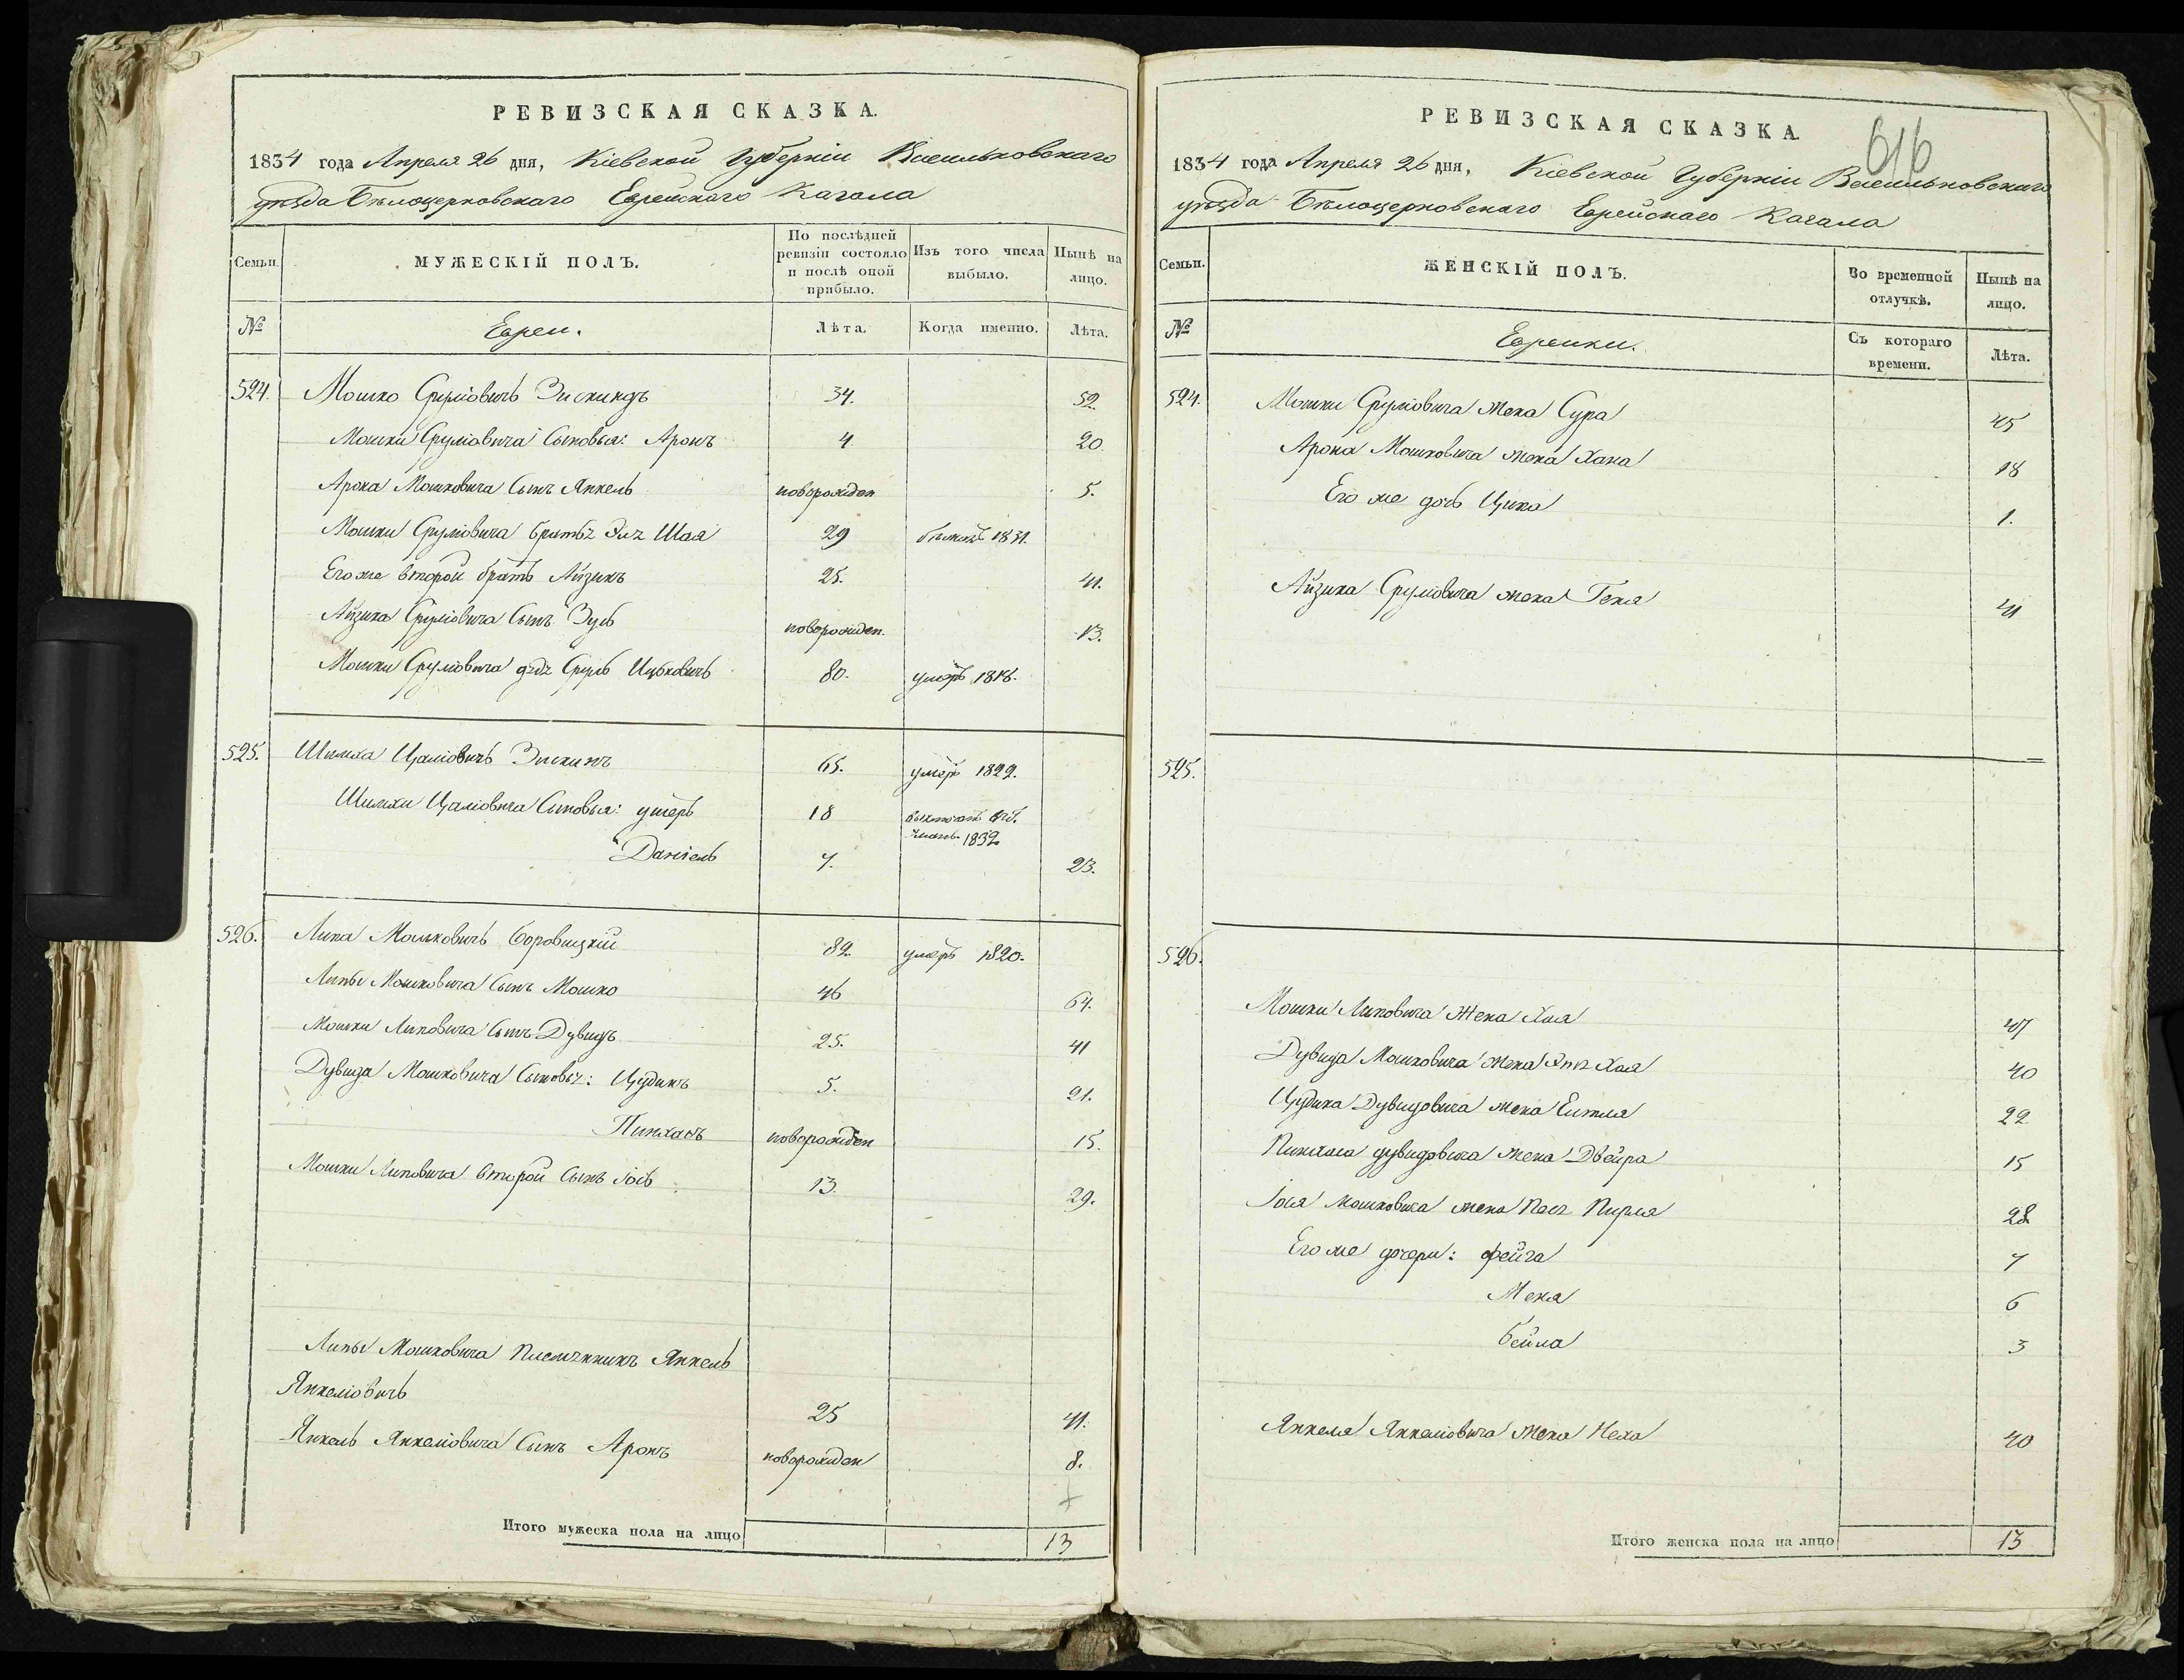 РЕВИЗСКАЯ СКАЗКА.
1834 года Апреля 26 дня, Кіевской Губерніи Васильковскаго
уѣзда Бѣлоцерковскаго Еврейскаго Кагала
Семьи.
МУЖЕСКІЙ ПОЛЪ.
По послѣдней ревизіи состояло и послѣ оной прибыло.
Изъ того числа выбыло.
Нынѣ на лицо.
№
Евреи.
Лѣта.
Когда именно.
Лѣта.
524. Мошко Сруліовичъ Зискиндъ 34. 52.
Мошки Сруліовича Сыновья: Аронъ 4 20
Арона Мошковича Сынъ Янкель новорожден 5.
Мошки Сруліовича братъ Эля Шая 29 1831.
Его же второй братъ Айзикъ 25. 41.
Айзика Сруліовича Сынъ Зусь новорожден. 13.
Мошки Сруліовича дядя Сруль Ицковичъ 80. умеръ 1818.
525. Шимха Цаліовичъ Зискинъ 65. умеръ 1822.
Шимхи Цаліовича Сыновья: Ушеръ 18
1832
Даніель 7. 23.
526. Липа Мошковичъ Боровицкій 82. умеръ 1820.
Липы Мошковича Сынъ Мошко 46 64.
Мошки Липовича Сынъ Дувидъ 25. 41
Дувида Мошковича Сыновья: Цудикъ 5. 21.
Пинхасъ новорожден 15.
Мошки Липовича второй Сынъ Іось 13. 29.
Липы Мошковича Племянникъ Янкель
Янкеліовичъ 25 41.
Янкель Янкеліовича Сынъ Аронъ новорожден 8.
Итого мужеска пола на лицо 13
616
РЕВИЗСКАЯ СКАЗКА.
1834 года Апреля 26 дня, Кіевской Губерніи Васильковскаго
уѣзда Бѣлоцерковскаго Еврейскаго Кагала
Семьи.
ЖЕНСКІЙ ПОЛЪ.
Во временной отлучкѣ.
Нынѣ на лицо.
№
Еврейки.
Съ котораго времени.
Лѣта.
524. Мошки Сруліовича жена Сура 45
Арона Мошковича жена Хана 18
Его же дочь Ципа 1.
Айзика Сруліовича жена Геня 41
525.
526.
Мошки Липовича жена Хая 47
Дувида Мошковича жена Хая 40
Цудика Дувидовича жена Ентля 22
Пинхаса Дувидовича жена Двейра 15
Іося Мошковича жена Песя Пирля 28
Его же дочери: Фейга 7
Меня 6
Бейла 3
Янкеля Янкеліовича жена Неха 40
Итого женска пола на лицо 13